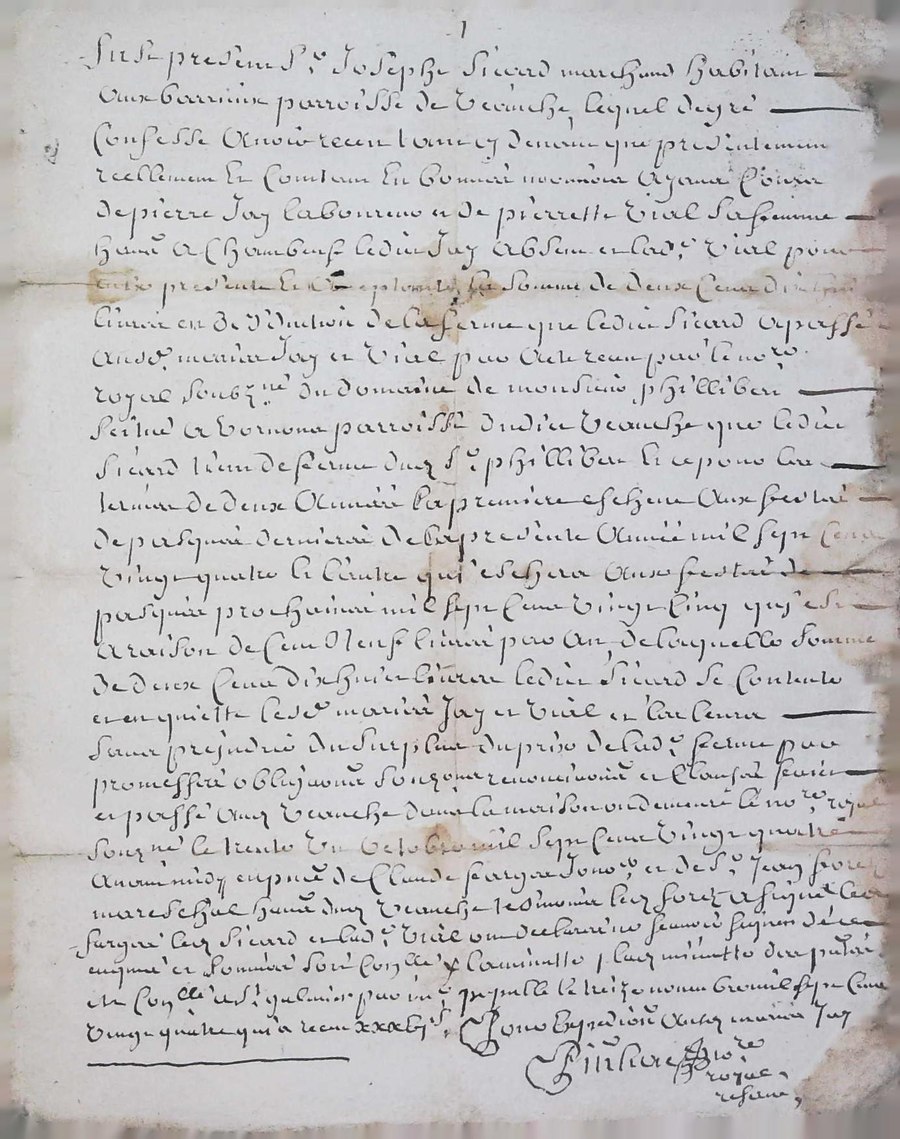 1
Fut present Sr Josephe Sicard marchand habitant
aux barriaux parroisse de Veauche, lequel de gré
Confesse Avoir receu tant cy devant que presentement
reellement Et Comtant En bonnes monnoies Ayant Cours
de pierre Jay laboureur et de pierrette Vial sa femme
hants A Chambeuf ledit Jay absent et lade Vial pour
eux presente Et la somme de deux Cent dix huit
livres en de duction de la ferme que ledit Sicard a passé
Ausd. mariés Jay et Vial par Acte receu par le nore
royal soubzné du domaine de monsieur philliber
scitué a parroisse dudict Veauche que ledit
Sicard tient de ferme dud Sr philliber Et ce pour les
termes de deux Années la premiere escheue Aux festes
de pasques dernieres de la presente Année mil sept Cent
Vingt quatre Et l'autre qui eschera Aux festes de
pasques prochaines mil sept Cent Vingt Cinq qui est
a raison de Cent Neuf livres par An, de laquelle somme
de deux Cent dix huict livres ledict Sicard se Contente
et en quitte lesd. mariés Jay et Vial et les leurs
sans prejudice du surplus du prix de lade ferme par
promesses obligaons renonciaons et Clauses faict
et passé Aud Veauche dans la maison ou demeure le nore royal
souzné le trente Un Octobre mil sept Cent Vingt quatre
Avant midy en pnce de Claude fargas et de Sr Jean forez
mareschal hant dud Veauche tesmoins led forez a signé led
fargas led Sicard et lade Vial ont declaré ne scavoir signer de ce
enquis et sommés la minutte
et Conllé a St galmier par le treize novembre mil sept Cent
Vingt quatre qui a receu xxxvjs. pour Expedition Ausd mariés Jay
nore
royal